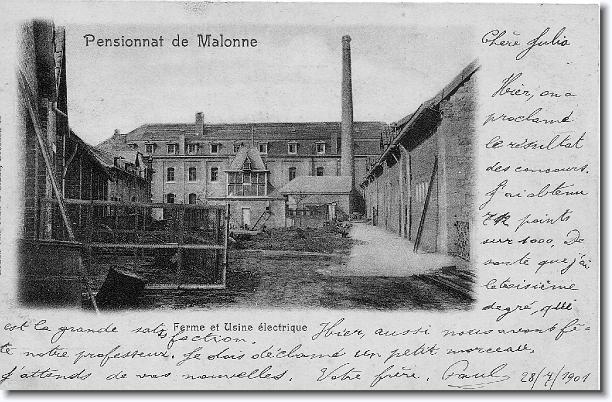 Pensionnat de Malonne
Chère Julia
Hier, on a
proclamé
le résultat
des concours.
J'ai obtenu
points
sur 1000, De
sorte que j'ai
le troisième
degré, qui
est la grande satisfaction.
Ferme et Usine électrique
Hier, aussi nous avons fê-
té notre professeur. Je dois déclamé un petit morceau.
J'attends de vos nouvelles. Votre frère. Paul 28/7/1901